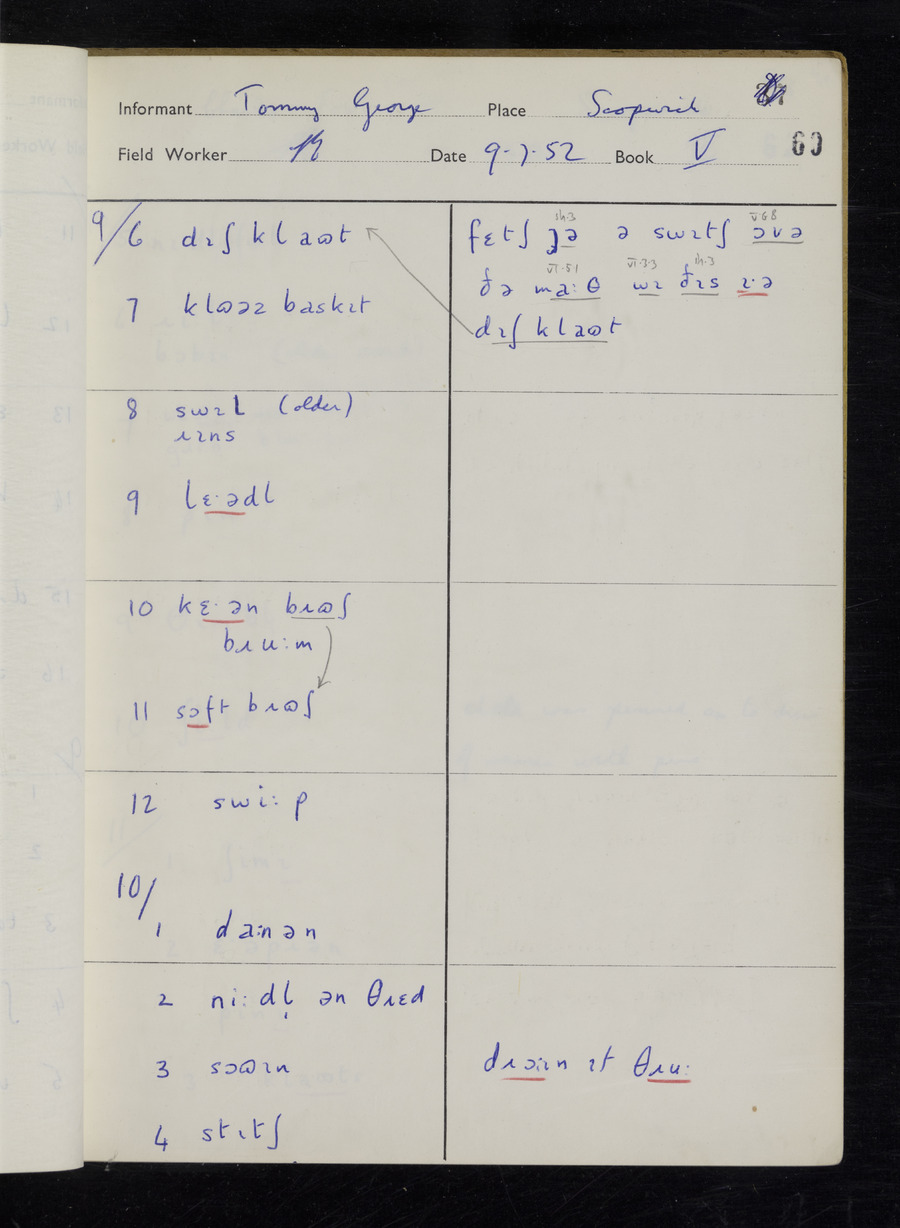 Informant Tommy George Place Scopwick
Field Worker Date 9.7.52 Book V 60
9/6 dɪʃklaɷt
7 klɷəz baskɪt
8 swɪl (older)
ɹɪns
9 lɛ·ədl
10 kɛ·ən bɹɷʃ
bɹu:m
11 sɔft bɹɷʃ
12 swi:p
10/
1 da:nən
2 ni:dl̩ ən θɹɛd
3 sɔɷɪn
4 stɪtʃ
III.3 V.6.8
fɛtʃ jə ə swɪtʃ ɔvə
VI.5.1 VI.3.3 III.3
ðə ma:θ wɪ ðɪs ɪ·ə
dɪʃklaɷt
dɹɔ:ɪn ɪt θɹu: